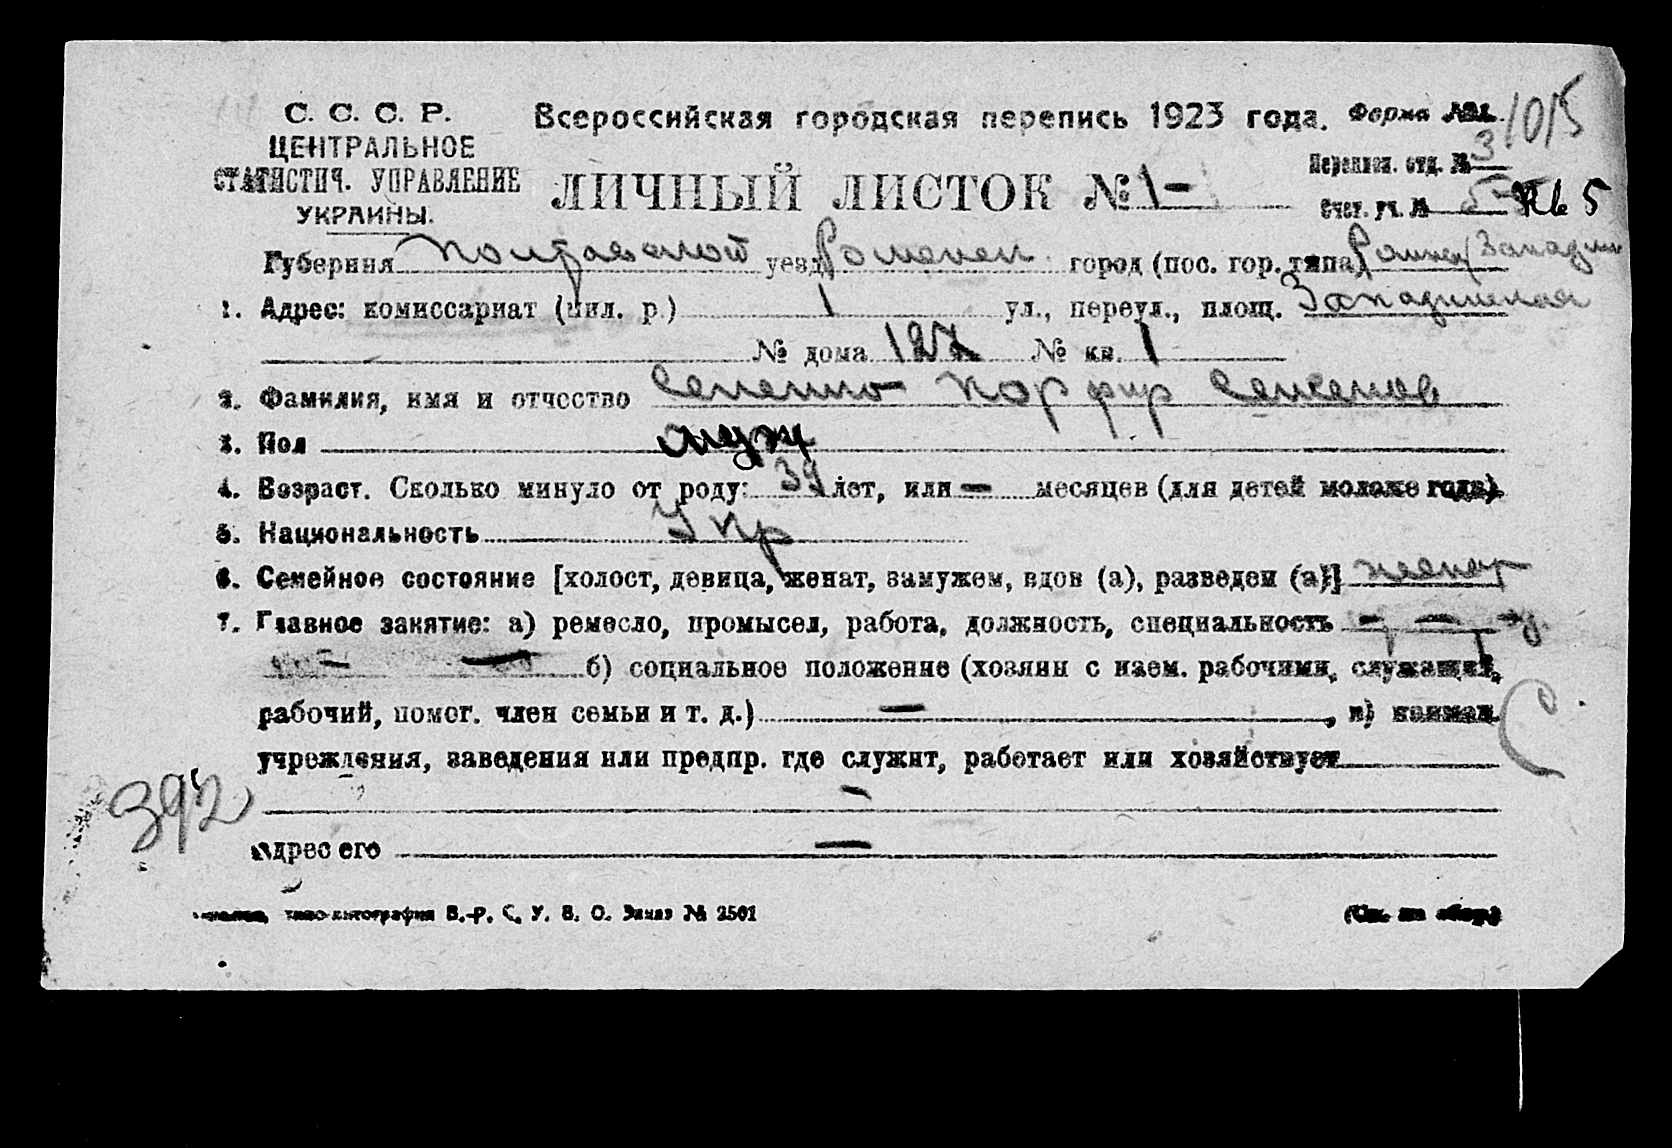 С. С. С. Р.
ЦЕНТРАЛЬНОЕ
СТАТИСТИЧ. УПРАВЛЕНИЕ
УКРАИНЫ.
Всероссийская городская перепись 1923 года. Форма №1. 1015
ЛИЧНЫЙ ЛИСТОК № 1 –
Переписн. отд. № 3
Счет. уч. № 5
Губерния Полтавской уезд Роменск город (пос. гор. типа)
1. Адрес: комиссариат (мил. р.) 1 ул., переул., площ.
№ дома 127 № кв. 1
2. Фамилия, имя и отчество Порфир Семенов
3. Пол муж
4. Возраст. Сколько минуло от роду: 39 лет, или – месяцев (для детей моложе года).
5. Национальность Укр
6. Семейное состояние [холост, девица, женат, замужем, вдов (а), разведен (а)] женат
7. Главное занятие: а) ремесло, промысел, работа, должность, специальность –
– – б) социальное положение (хозяин с наем. рабочими, служащий,
рабочий, помог. член семьи и т. д.) – , в) наимен.
учреждения, заведения или предпр. где служит, работает или хозяйствует
–
392
Адрес его –
типо-литография В.-Р. С. У. В. О. Заказ № 2501 (См. на обор.)